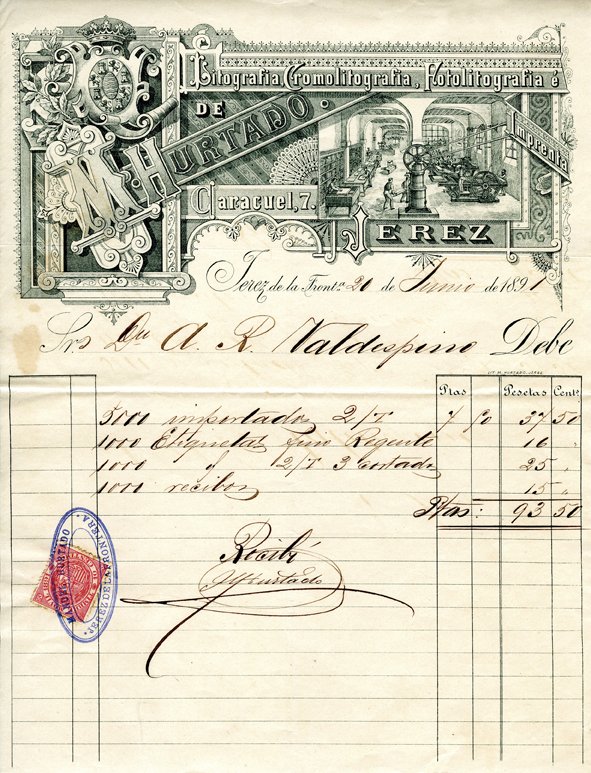 Litografía, Cromolitografía, Fotolitografía é
Imprenta
DE
M. HURTADO.
Caracuel, 7.
JEREZ
Jerez de la Front.ª 20 de Junio de 1891
Srs Dn A. R. Valdespino Debe
LIT. M. HURTADO, JEREZ
Ptas Pesetas Cents.
5000 importados 2/T 7 50 37 50
1000 Etiquetas fino Regente 16 "
1000 id 2/T 3 cortado 25 "
1000 recibos 15 "
Ptas: 93 50
Recibí
M Hurtado
MANUEL HURTADO
JEREZ DE LA FRONTERA